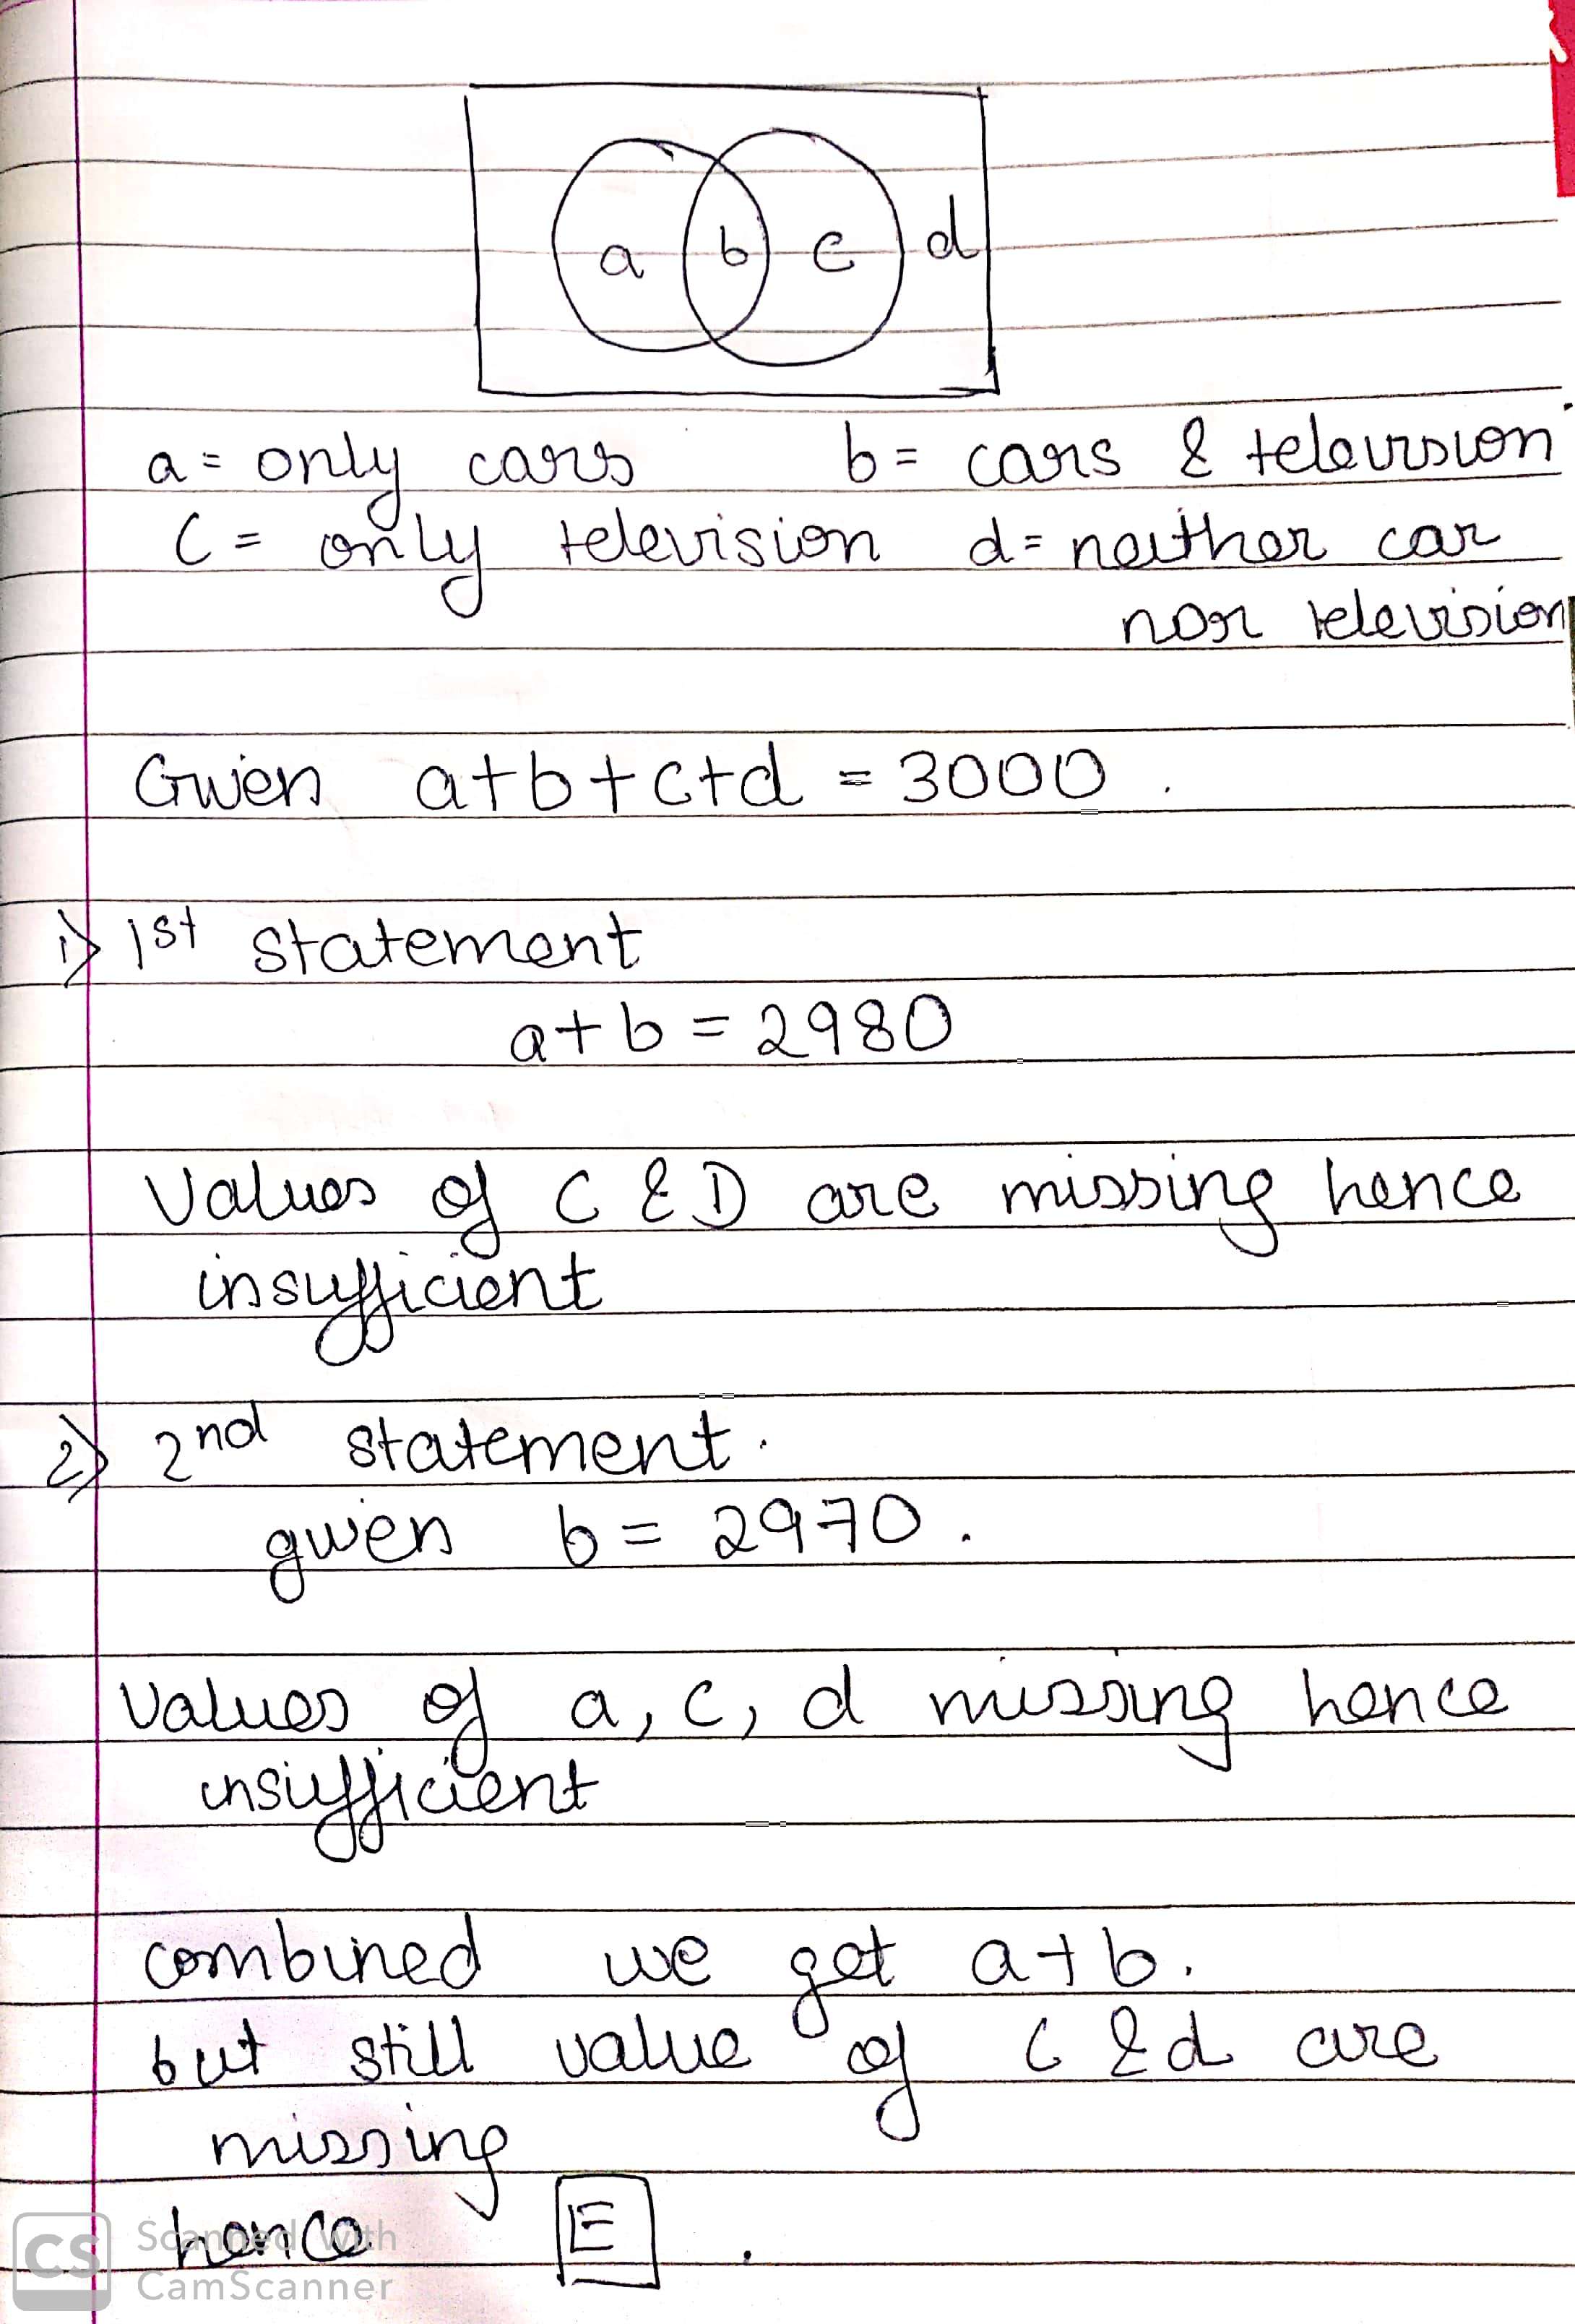 a b c d
a = only cars b = cars & television
C = only television d = neither car
nor television
Given a+b+c+d = 3000.
1) 1st statement
a+b = 2980
Values of C & D are missing hence
insufficient
2) 2nd statement.
given b = 2970.
values of a, c, d missing hence
insufficient
combined we get a+b.
but still value of c & d are
missing
hence E.
CS Scanned with
CamScanner